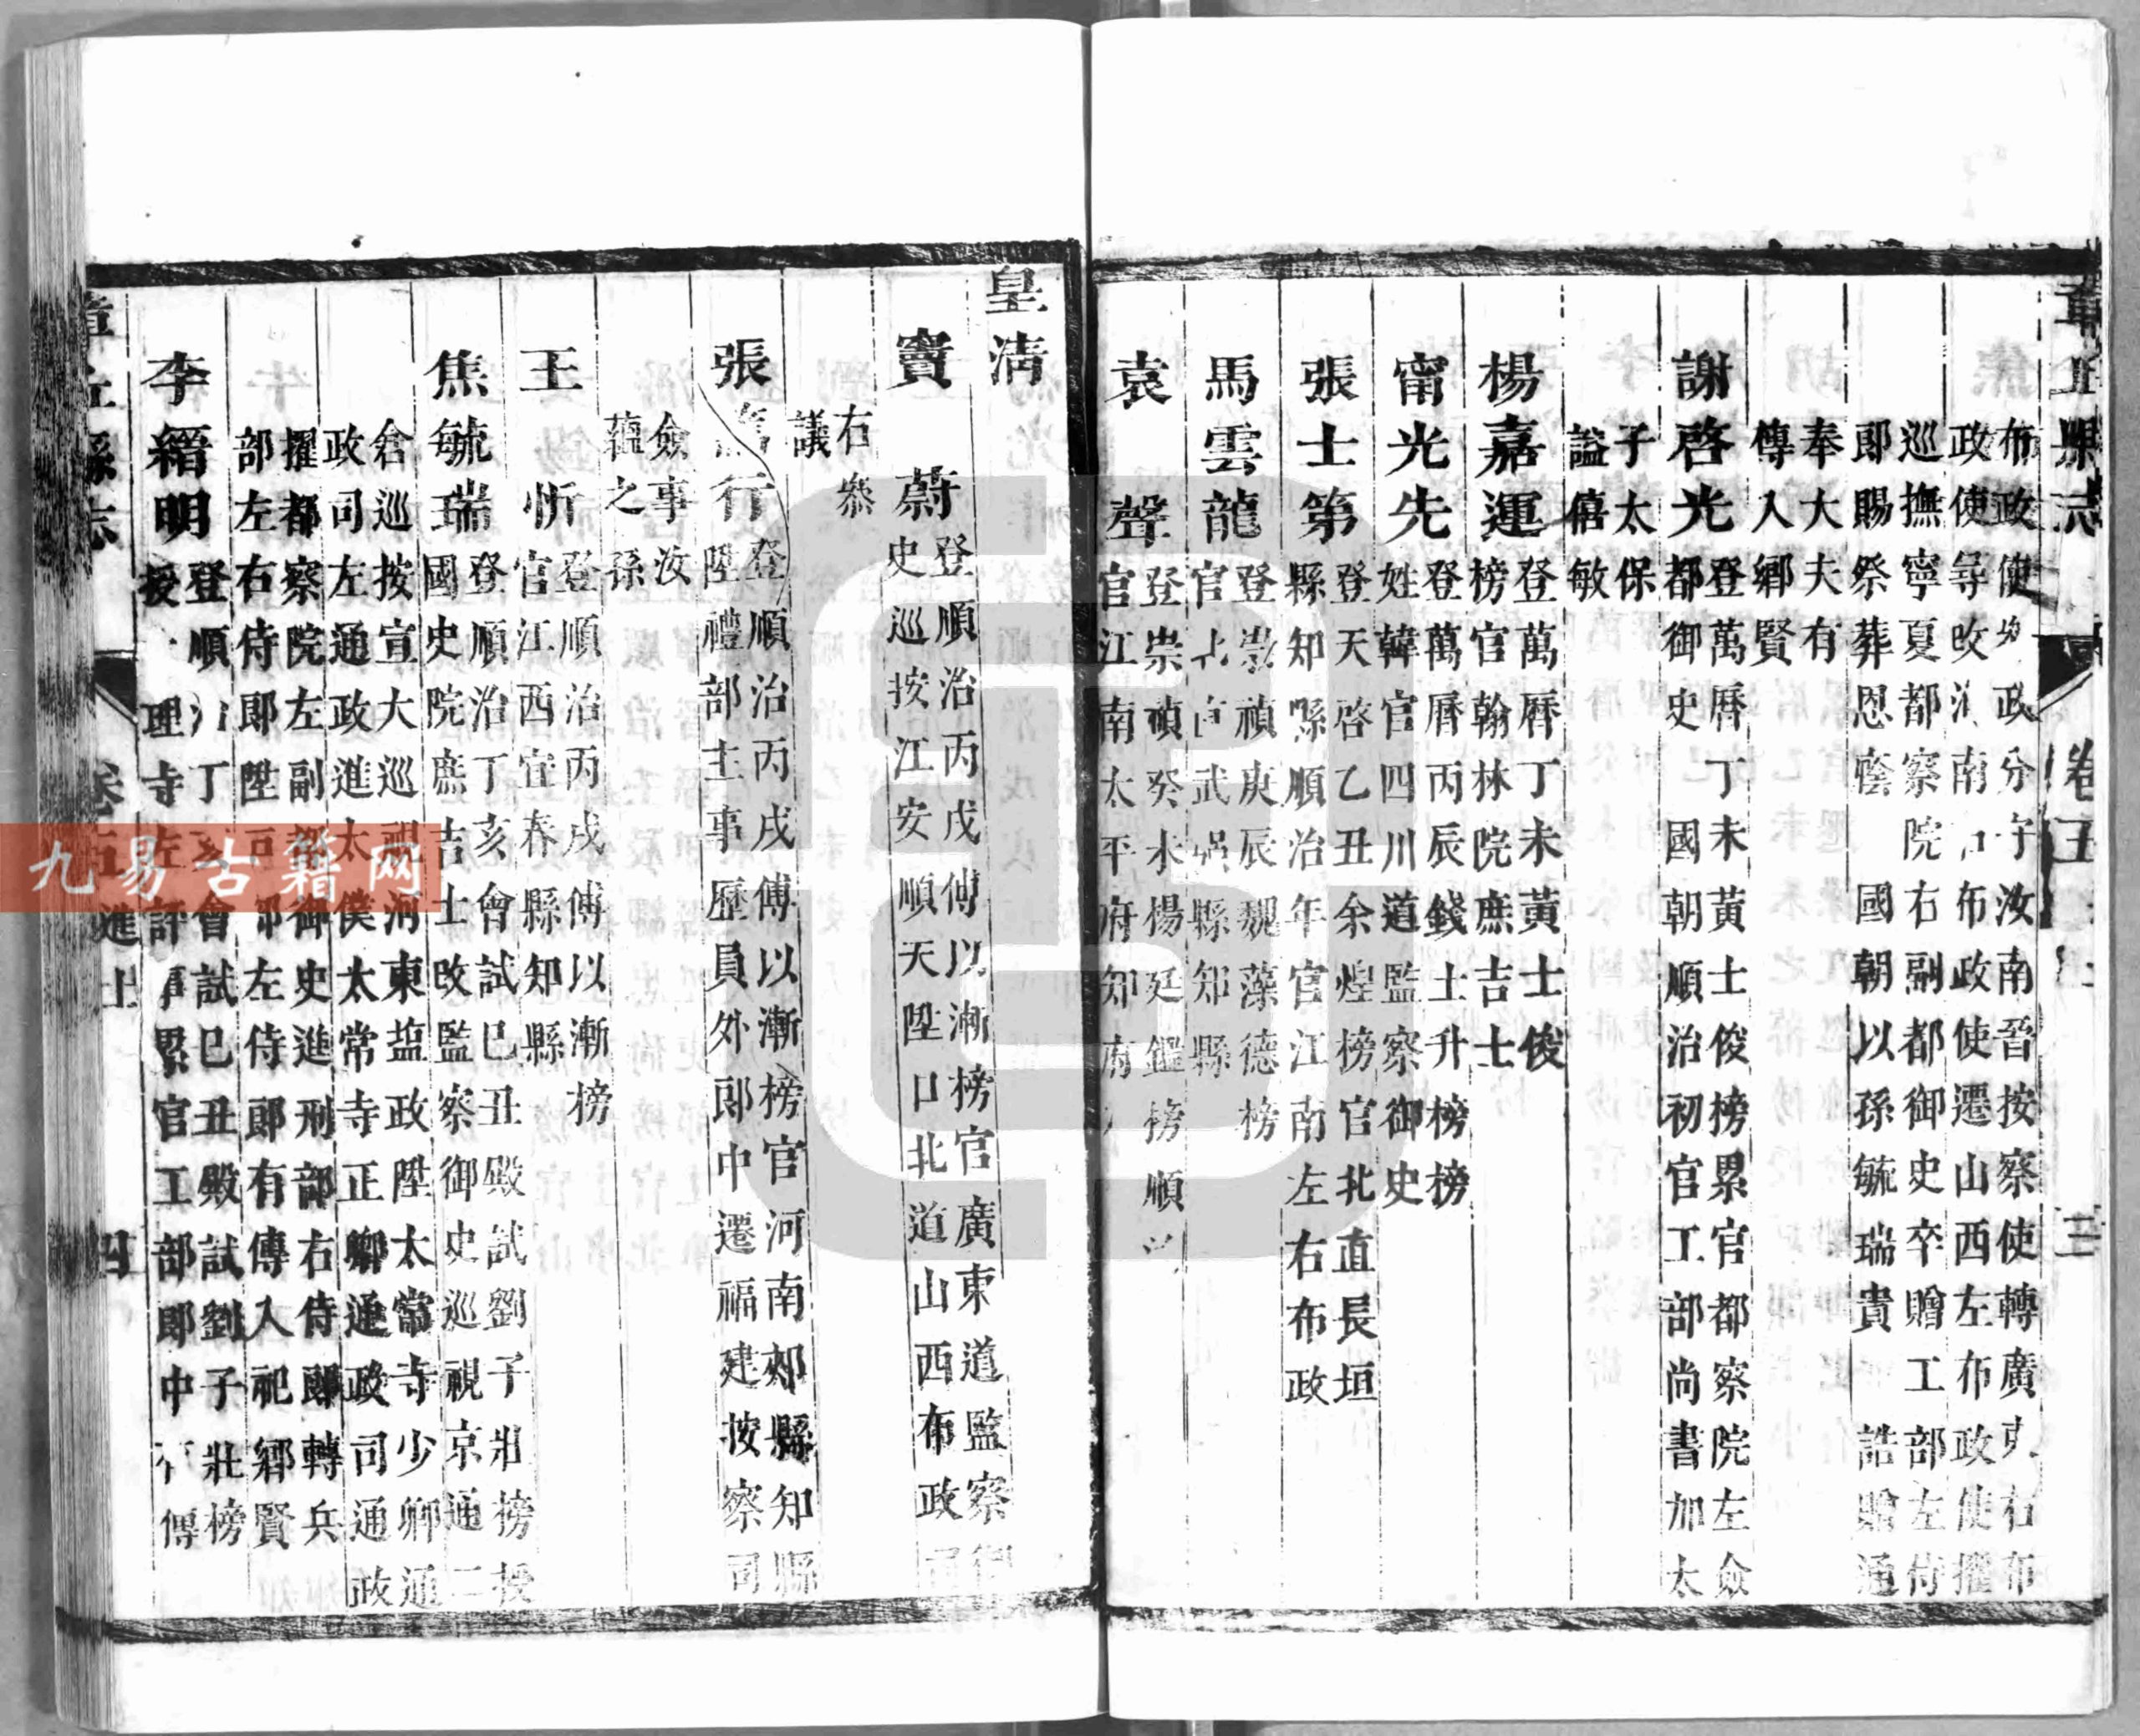 章丘縣志
卷五
三
布政使分守汝南晉按察使轉廣右布
政使尋改南布政使遷山西左布政使擢
巡撫寧夏都察院右副都御史卒贈工部左侍
郎賜祭葬恩廕 國朝以孫毓瑞貴 誥贈通
奉大夫有
傳入鄉賢
謝啓光
登萬曆丁未黃士俊榜累官都察院左僉
都御史 國朝順治初官工部尚書加太
子太保
謚僖敏
楊嘉運
登萬曆丁未黃士俊
榜官翰林院庶吉士
甯光先
登萬曆丙辰錢士升榜榜
姓韓官四川道監察御史
張士第
登天啓乙丑余煌榜官北直長垣
縣知縣順治年官江南左右布政
馬雲龍
登崇禎庚辰魏藻德榜
官北直武縣知縣
袁聲
登崇禎癸未楊廷鑑榜順
官江南太平府知府
皇清
竇蔚
登順治丙戌傅以漸榜官廣東道監察御
史巡按江安順天陞口北道山西布政司
右叅
議
張行
登順治丙戌傅以漸榜官河南郟縣知縣
陞禮部主事歷員外郎中遷福建按察司
僉事汝
蘊之孫
王忻
登順治丙戌傅以漸榜
官江西宜春縣知縣
焦毓瑞
登順治丁亥會試巳丑殿試劉子壯榜授
國史院庶吉士改監察御史巡視京通二
倉巡按宣大巡視河東塩政陞太常寺少卿通
政司左通政進太僕太常寺正卿通政司通政
擢都察院左副都御史進刑部右侍郎轉兵
部左右侍郎陞戸部左侍郎有傳入祀鄉賢
李縉明
登順治丁亥會試巳丑殿試劉子壯榜
授理寺左評事累官工部郎中有傳
章丘縣志
卷五
進士
四
九易古籍网